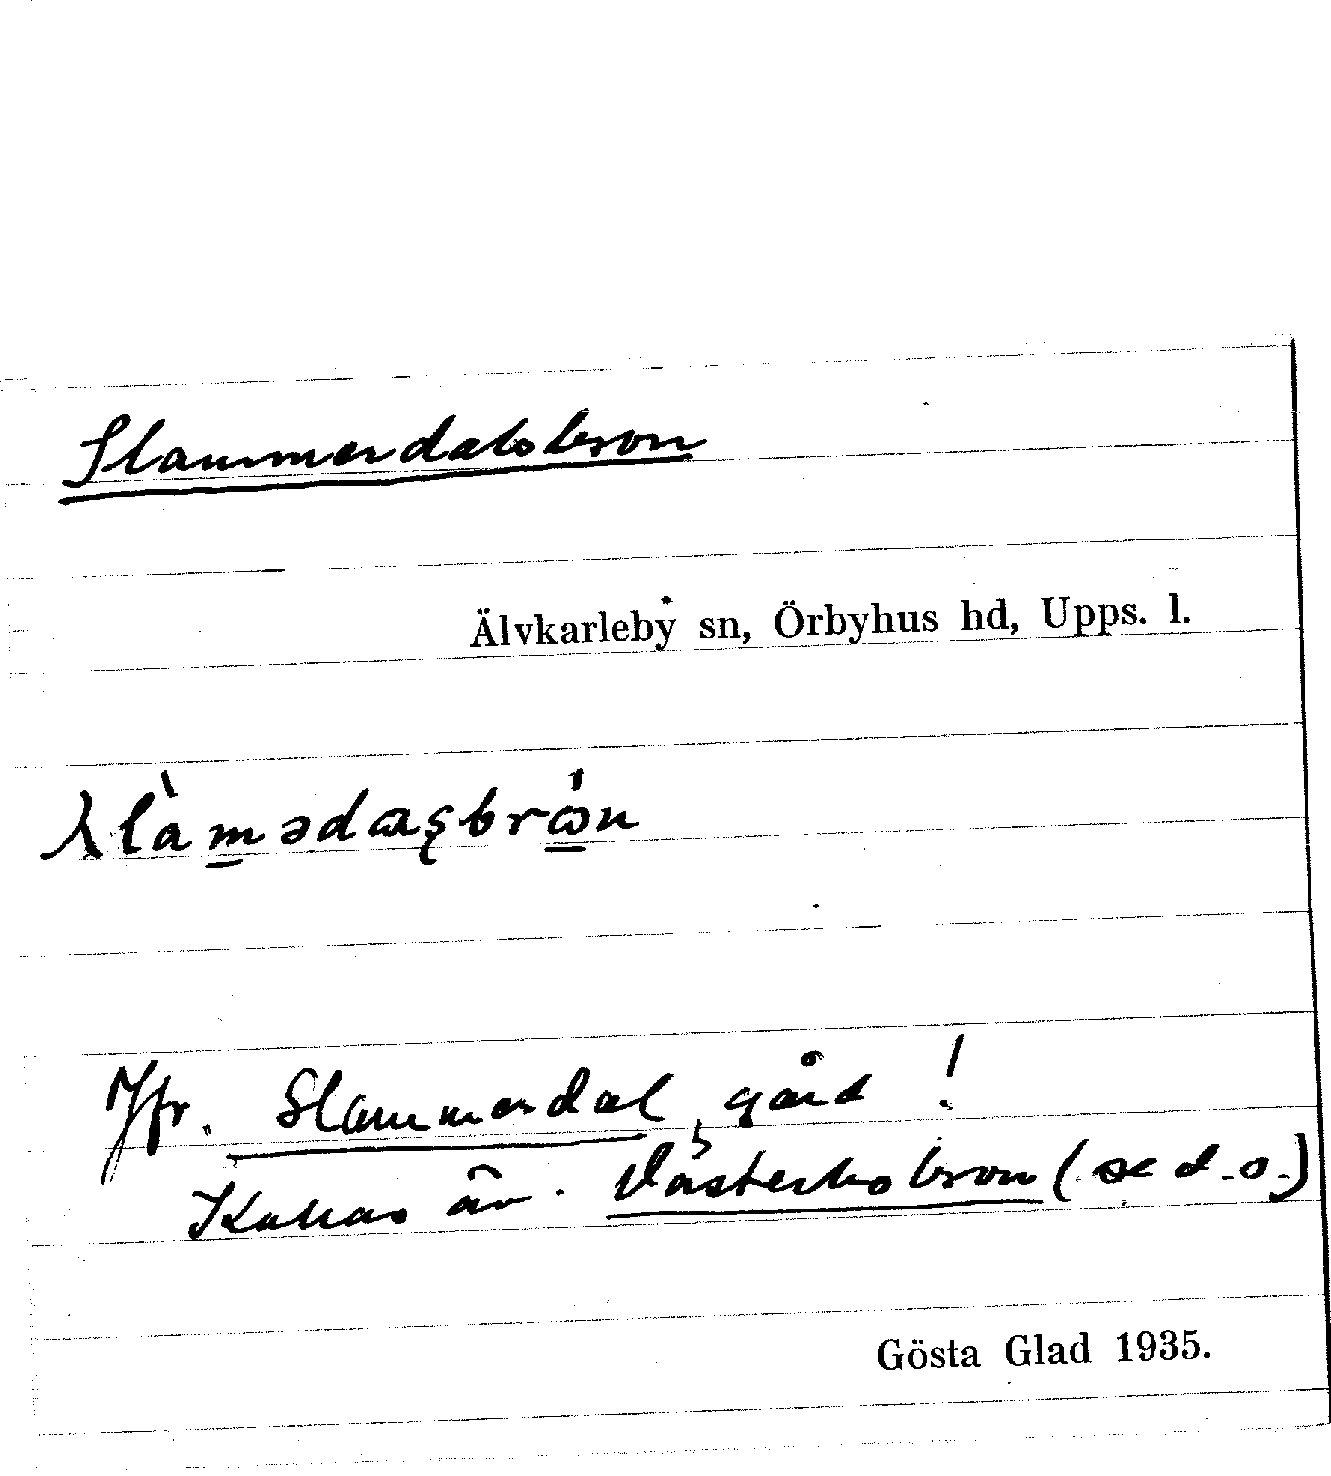 Slammerdalsbron
Älvkarleby sn, Örbyhus hd, Upps. l.
Jfr. Slammerdal, gård!
Kallas äv. Västerhobron (se d.o.)
Gösta Glad 1935.